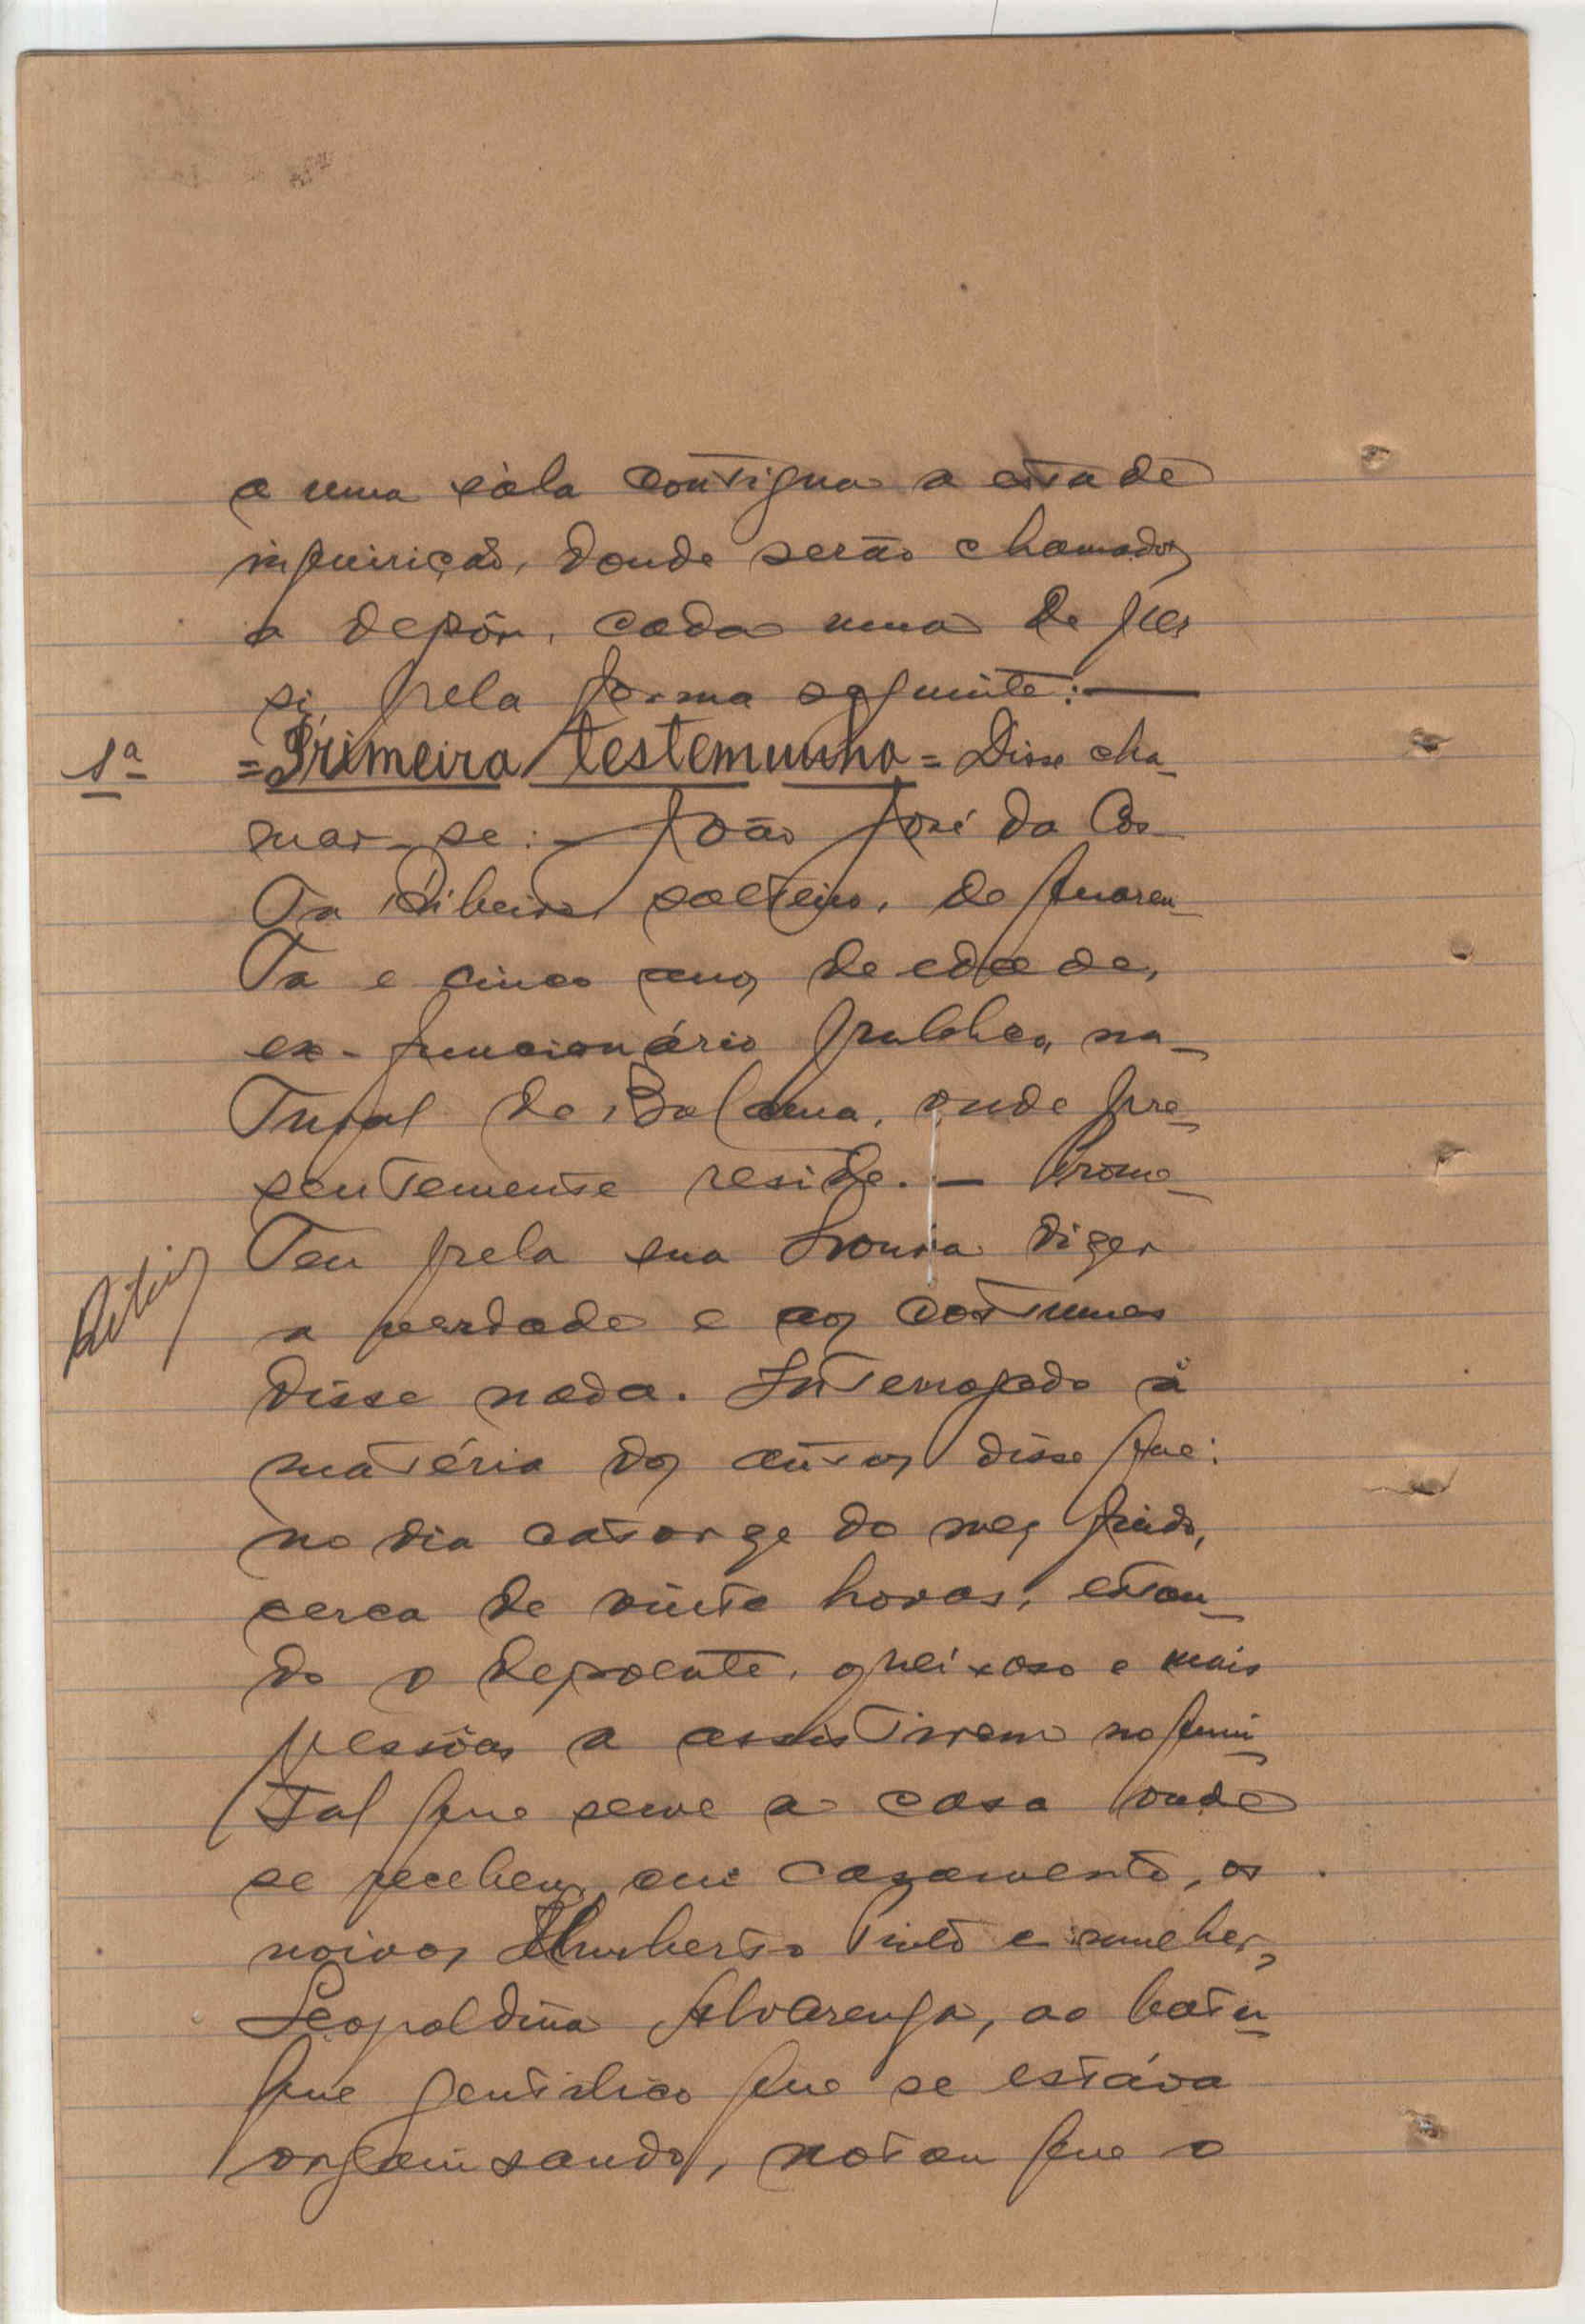 a uma sála contigua a esta de
inquirição, donde serão chamados
a depôr, cada uma de per
si, pela forma seguinte:—
1ª =Primeira testemunha= Disse cha-
mar-se:- João José da Cos-
ta Ribeiro, solteiro, de quaren-
ta e cinco anos de edade,
ex-funcionário publico, na-
tural de Bolama, onde pre-
sentemente reside. — Prome-
teu pela sua honra dizer
a verdade e aos costumes
disse nada. Interrogado á
matéria dos autos disse que:
no dia catorze do mez findo,
cerca de vinte horas, estan-
do o depoente, queixoso e mais
pessôas a assistirem no quin-
tal que serve a casa onde
se recebem em casamento, os
noivos Humberto Pinto e mulher,
Leopoldina Alvarenga, ao batu-
que gentilico que se estáva
organisando, notou que o